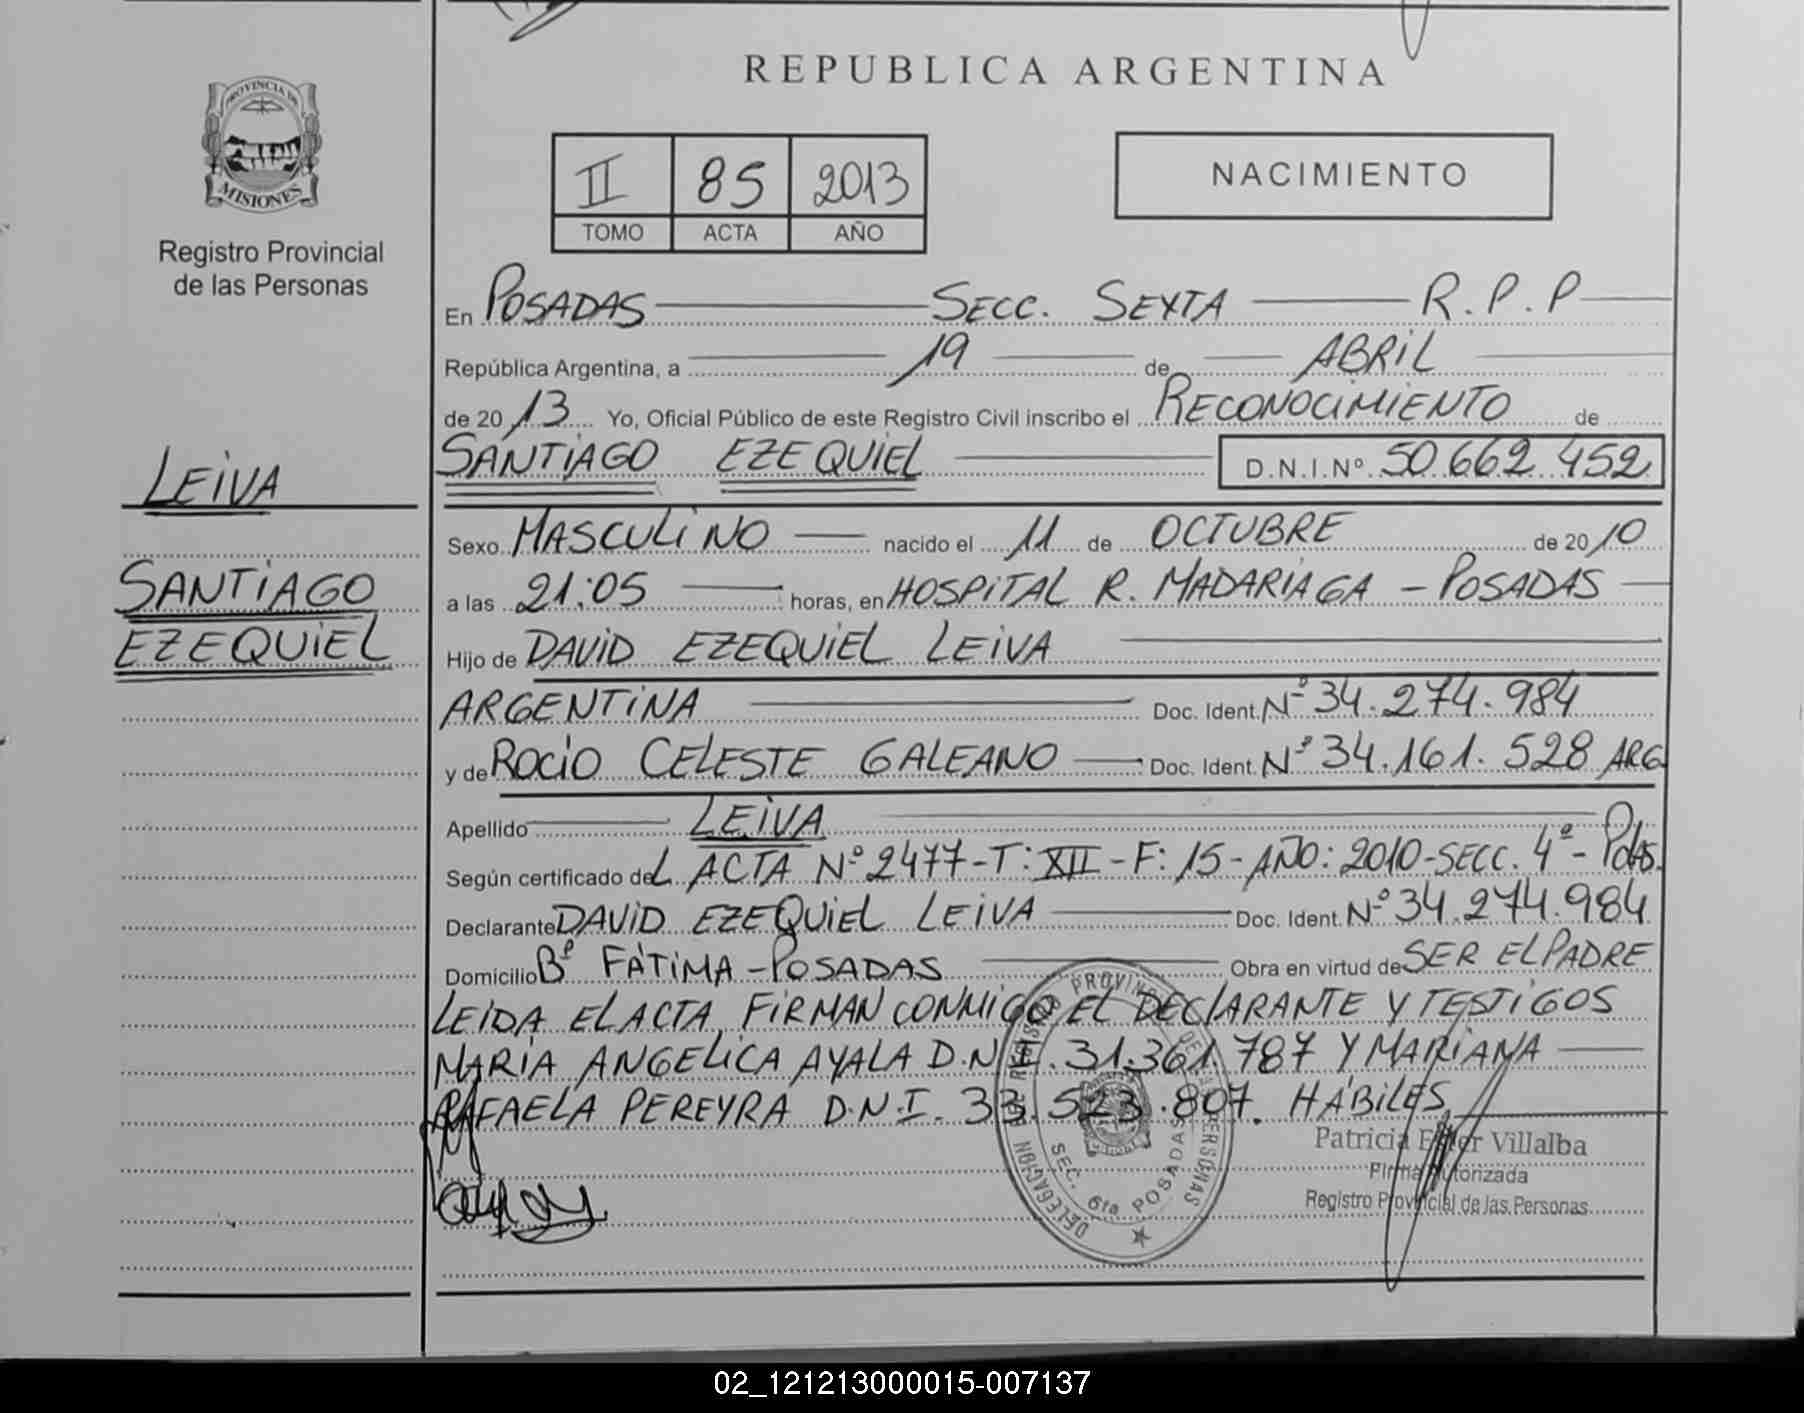 REPUBLICA ARGENTINA
PROVINCIA DE
MISIONES
Registro Provincial
de las Personas
II 85 2013
TOMO ACTA AÑO
NACIMIENTO
LEIVA
SANTIAGO
EZEQUIEL
En POSADAS SECC. SEXTA R.P.P
República Argentina, a 19 de ABRIL
de 2013 Yo, Oficial Público de este Registro Civil inscribo el RECONOCIMIENTO de
SANTIAGO EZEQUIEL D.N.I.Nº 50.662.452
Sexo MASCULINO nacido el 11 de OCTUBRE de 2010
a las 21:05 horas, en HOSPITAL R. MADARIAGA - POSADAS
Hijo de DAVID EZEQUIEL LEIVA
ARGENTINA Doc. Ident. Nº 34.274.984
y de ROCIO CELESTE GALEANO Doc. Ident. Nº 34.161.528 ARG
Apellido LEIVA
Según certificado del ACTA Nº 2477-T: XII-F: 15-AÑO: 2010-SECC. 4º- Pdas.
Declarante DAVID EZEQUIEL LEIVA Doc. Ident. Nº 34.274.984
Domicilio Bº FÁTIMA-POSADAS Obra en virtud de SER EL PADRE
LEIDA EL ACTA, FIRMAN CONMIGO EL DECLARANTE Y TESTIGOS
MARÍA ANGELICA AYALA D.N.I. 31.361.787 Y MARIANA
RAFAELA PEREYRA D.N.I. 33.523.807. HÁBILES,
DELEGACION DEL REGISTRO PROVINCIAL DE LAS PERSONAS
SEC. 6ta. POSADAS
Patricia Ester Villalba
Firma Autorizada
Registro Provincial de las Personas
02_121213000015-007137